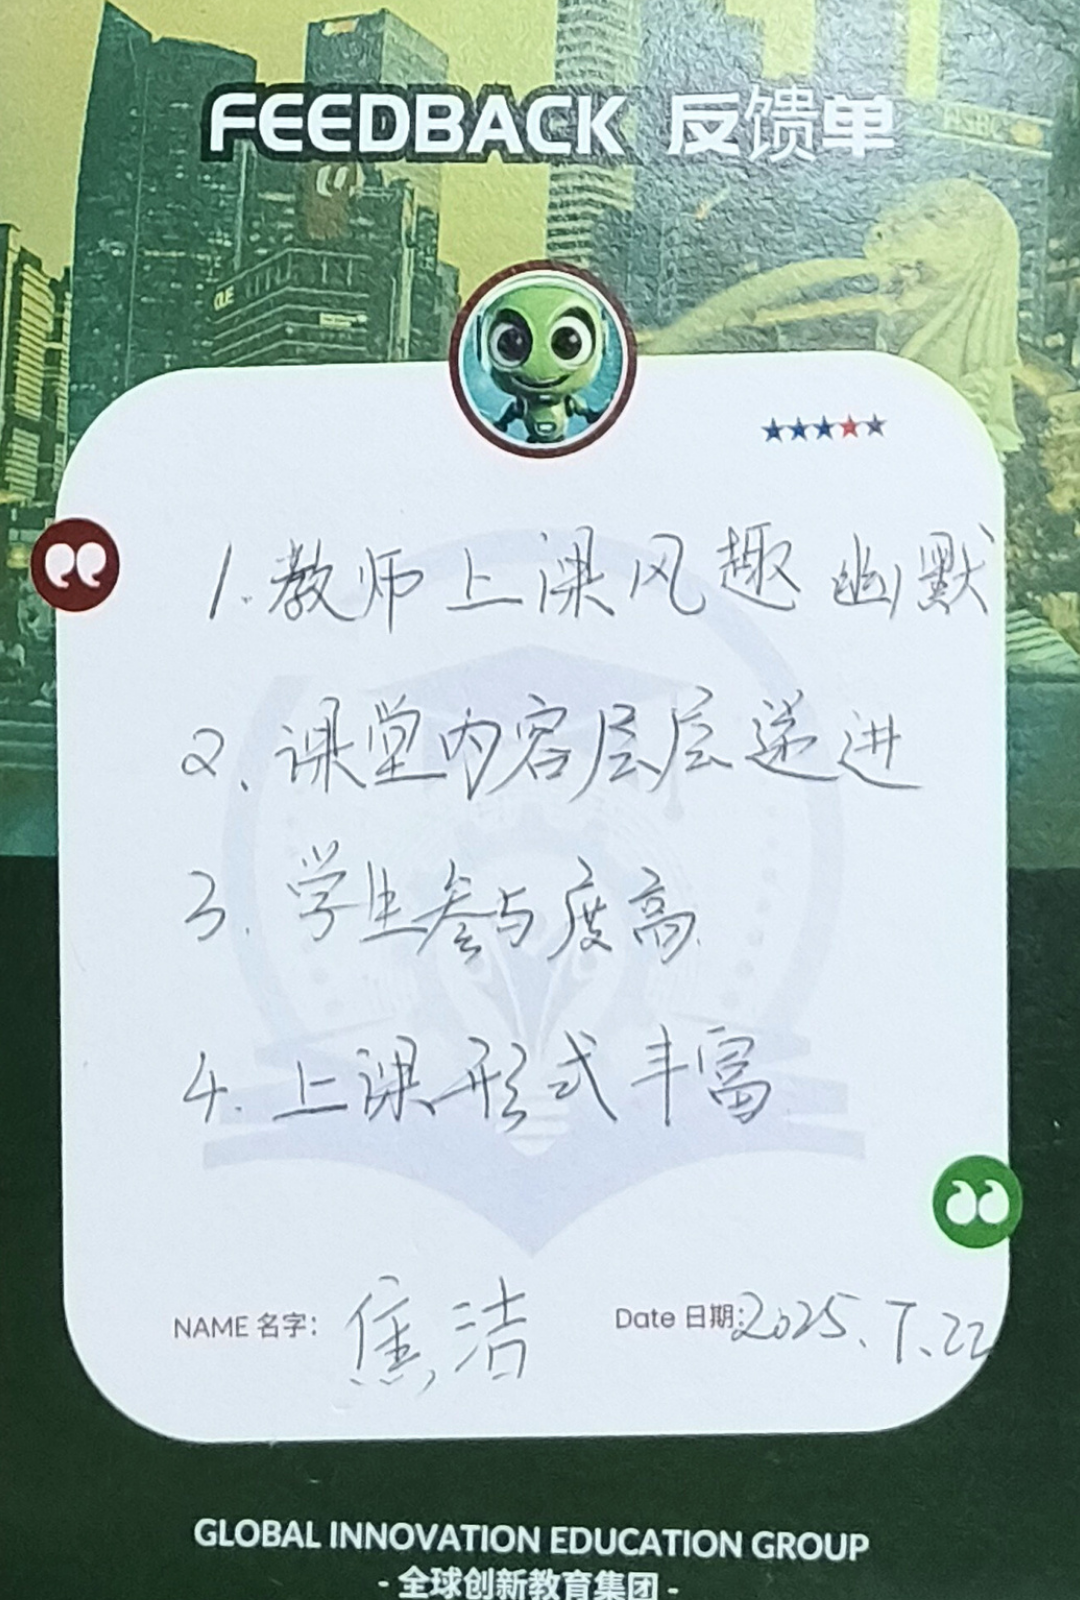 FEEDBACK 反馈单
HSBC
1. 教师上课风趣幽默
2. 课堂内容层层递进
3. 学生参与度高
4. 上课形式丰富
NAME 名字: 焦洁
Date 日期: 2025.7.22
GLOBAL INNOVATION EDUCATION GROUP
- 全球创新教育集团 -